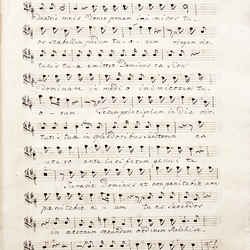 dextris meis Donec ponam inimicos tu-
os scabellum pedum tu-o-rum virgam vir-
tutis tuæ emittet Dominus ex Sion
dominare in medio inimicorum tu-
o-rum Tecum principium in die vir-
tutis tuæ in splendoribus sanctorum ex
utero ante luciferum genui te
Juravit Dominus et non pænitebit non
pænitebit e-um tu es Sacerdos
in æternum secundum ordinem Melchise-